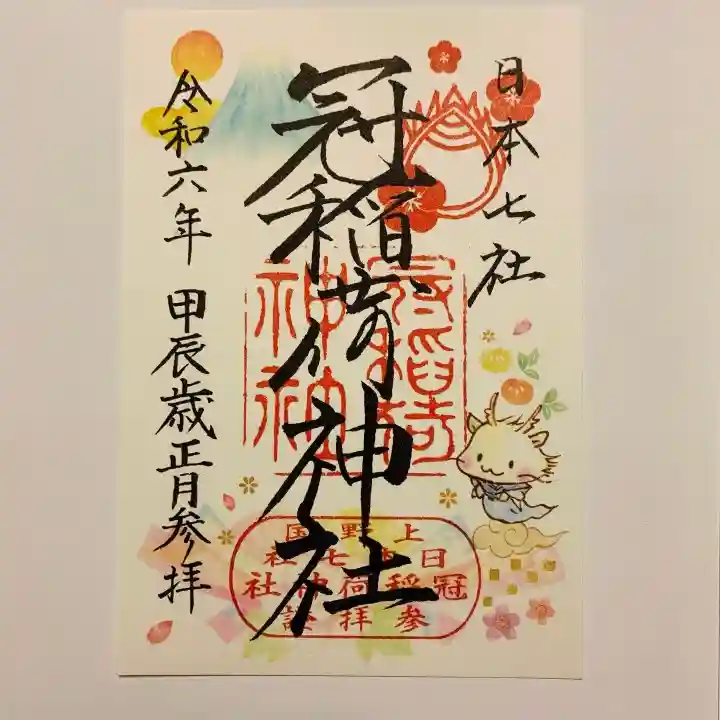 日本七社
冠稲荷神社
冠稲荷
神社
上野国
日本七社
冠稲荷神社
参拝証
令和六年 甲辰歳正月参拝